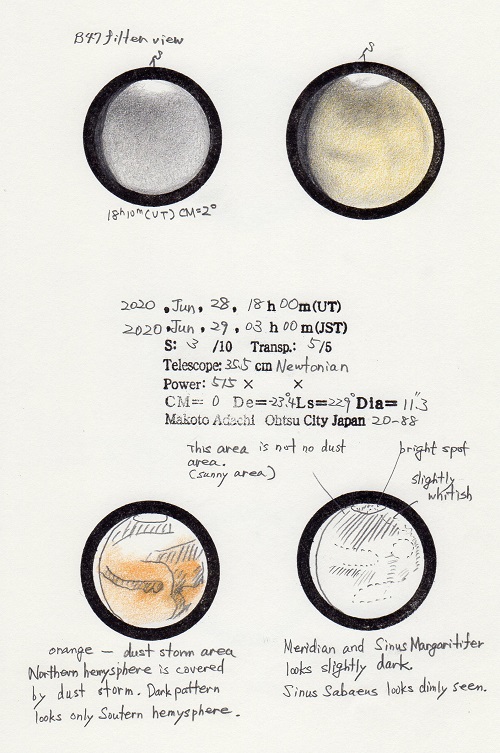 B47 filter view
S
S
18h10m(UT) CM=2°
2020, Jun, 28, 18h00m(UT)
2020, Jun, 29, 03h00m(JST)
S: 3 /10 Transp.: 5/5
Telescope: 35.5 cm Newtonian
Power: 515 × ×
CM= 0 De=-23.4 Ls=229° Dia= 11.3
Makoto Adachi Ohtsu City Japan 20-88
This area is not no dust
area.
(sunny area)
bright spot
slightly
whitish
orange — dust storm area
Northern hemysphere is covered
by dust storm. Dark pattern
looks only Soutern hemysphere.
Meridian and Sinus Margarititer
looks slightly dark.
Sinus Sabaeus looks dimly seen.